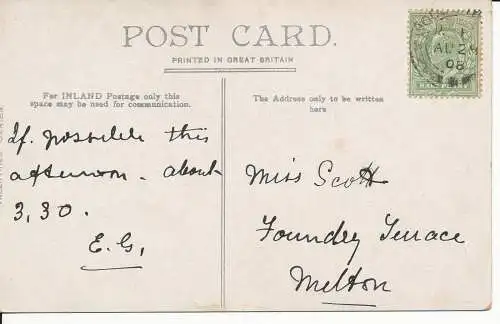 POST CARD.
PRINTED IN GREAT BRITAIN
For INLAND Postage only this
space may be used for communication.
The Address only to be written
here
AU 28
08
HALF PENNY
If possible this
afternoon. about
3.30.
E.G,
Miss Scott
Foundry Terrace
Melton